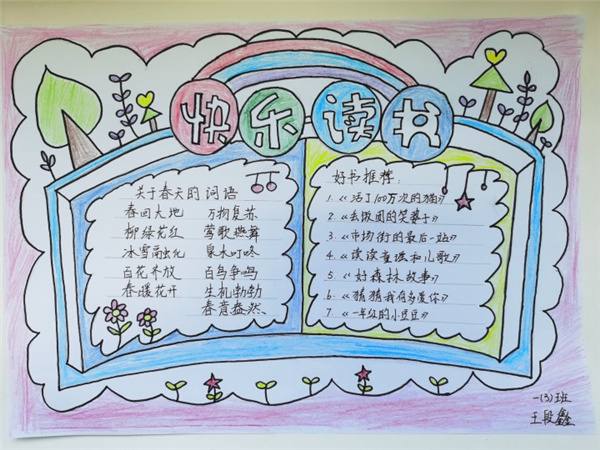 快乐读书
关于春天的词语
春回大地 万物复苏
柳绿花红 莺歌燕舞
冰雪融化 泉水叮咚
百花齐放 百鸟争鸣
春暖花开 生机勃勃
春意盎然、
好书推荐:
1.《活了100万次的猫》
2.《去做圆的笑婆子》
3.《市场街的最后一站》
4.《读读童谣和儿歌》
5.《好森林故事》
6.《猜猜我有多爱你》
7.《一年级的小豆豆》
一(3)班
王段鑫